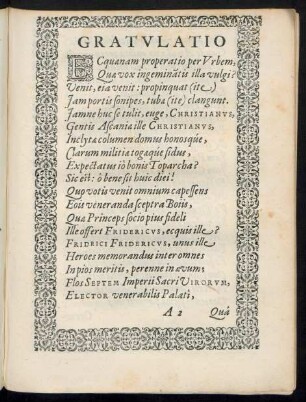 GRATVLATIO
ECquanam properatio per Vrbem,
Qua vox ingeminātis illa vulgi?
Venit, eia venit: propinquat (ite)
Jam portis sonipes, tuba (ite) clangunt.
Jamne huc se tulit, euge, CHRISTIANVS,
Gentis Ascaniæ ille CHRISTIANVS,
Inclyta columen domus honosque,
Clarum militia togaque sidus,
Expectatus iô bonis Toparcha?
Sic est: ô bene sit huic diei!
Quo votis venit omnium capessens
Eois veneranda sceptra Boiis,
Qua Princeps socio pius fideli
Ille offert FRIDERICVS, ecquis ille?
FRIDEICI FRIDERICVS, unus ille
Heroes memorandus inter omnes
In pios meritis, perenne in ævum;
Flos SEPTEM Imperii Sacri VIRORVM,
ELECTOR venerabilis Palati,
A 2 Quá